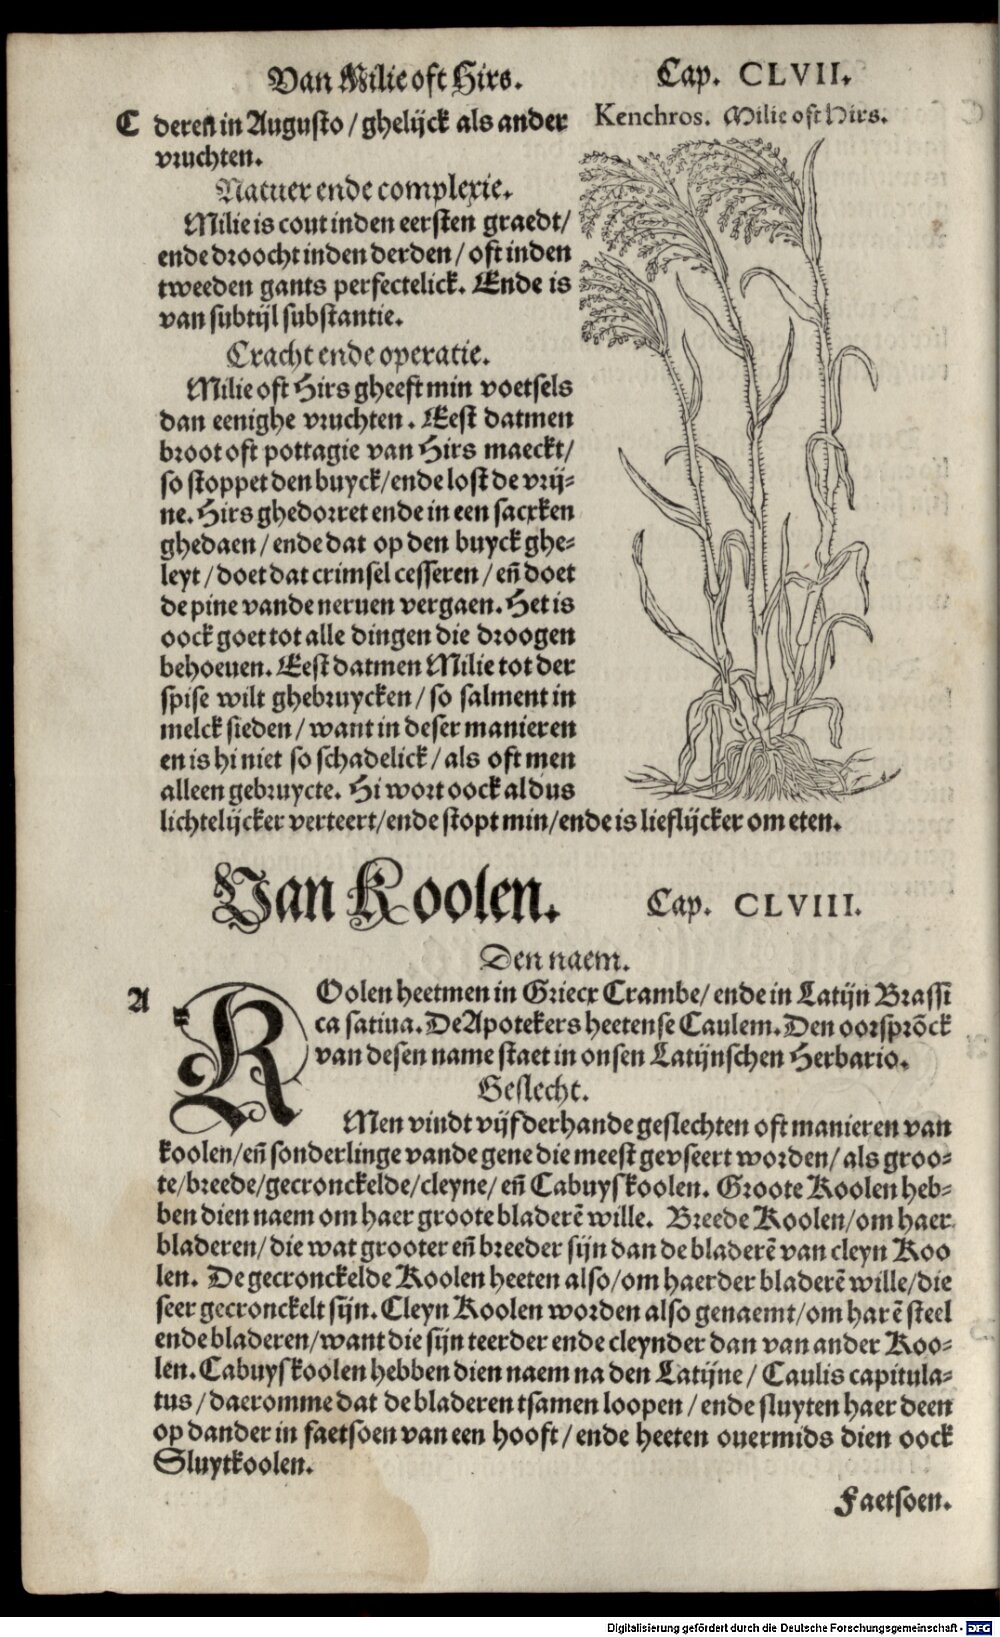 Van Milie oft Hirs. Cap. CLVII.
C deren in Augusto / ghelijck als ander
vruchten.
Kenchros. Milie oft Hirs.
Natuer ende complexie.
Milie is cout inden eersten graedt /
ende droocht inden derden / oft inden
tweeden gants perfectelick. Ende is
van subtijl substantie.
Cracht ende operatie.
Milie oft Hirs gheeft min voetsels
dan eenighe vruchten. Eest datmen
broot oft pottagie van Hirs maeckt /
so stoppet den buyck / ende lost de vrij=
ne. Hirs ghedorret ende in een sacxken
ghedaen / ende dat op den buyck ghe=
leyt / doet dat crimsel cesseren / eñ doet
de pine vande neruen vergaen. Het is
oock goet tot alle dingen die droogen
behoeuen. Eest datmen Milie tot der
spise wilt ghebruycken / so salment in
melck sieden / want in deser manieren
en is hi niet so schadelick / als oft men
alleen gebruycte. Hi wort oock aldus
lichtelijcker verteert / ende stopt min / ende is lieflijcker om eten.
Van Koolen. Cap. CLVIII.
Den naem.
A KOolen heetmen in Griecx Crambe / ende in Latijn Brassi
ca satiua. De Apotekers heetense Caulem. Den oorsprõck
van desen name staet in onsen Latijnschen Herbario.
Geslecht.
Men vindt vijfderhande geslechten oft manieren van
koolen / eñ sonderlinge vande gene die meest gevseert worden / als groo=
te / breede / gecronckelde / cleyne / eñ Cabuyskoolen. Groote Koolen heb=
ben dien naem om haer groote bladerẽ wille. Breede Koolen / om haer
bladeren / die wat grooter eñ breeder sijn dan de bladerẽ van cleyn Koo
len. De gecronckelde Koolen heeten also / om haerder bladerẽ wille / die
seer gecronckelt sijn. Cleyn Koolen worden also genaemt / om harẽ steel
ende bladeren / want die sijn teerder ende cleynder dan van ander Koo=
len. Cabuyskoolen hebben dien naem na den Latijne / Caulis capitula=
tus / daeromme dat de bladeren tsamen loopen / ende sluyten haer deen
op dander in faetsoen van een hooft / ende heeten ouermids dien oock
Sluytkoolen.
Faetsoen.
Digitalisierung gefördert durch die Deutsche Forschungsgemeinschaft - DFG